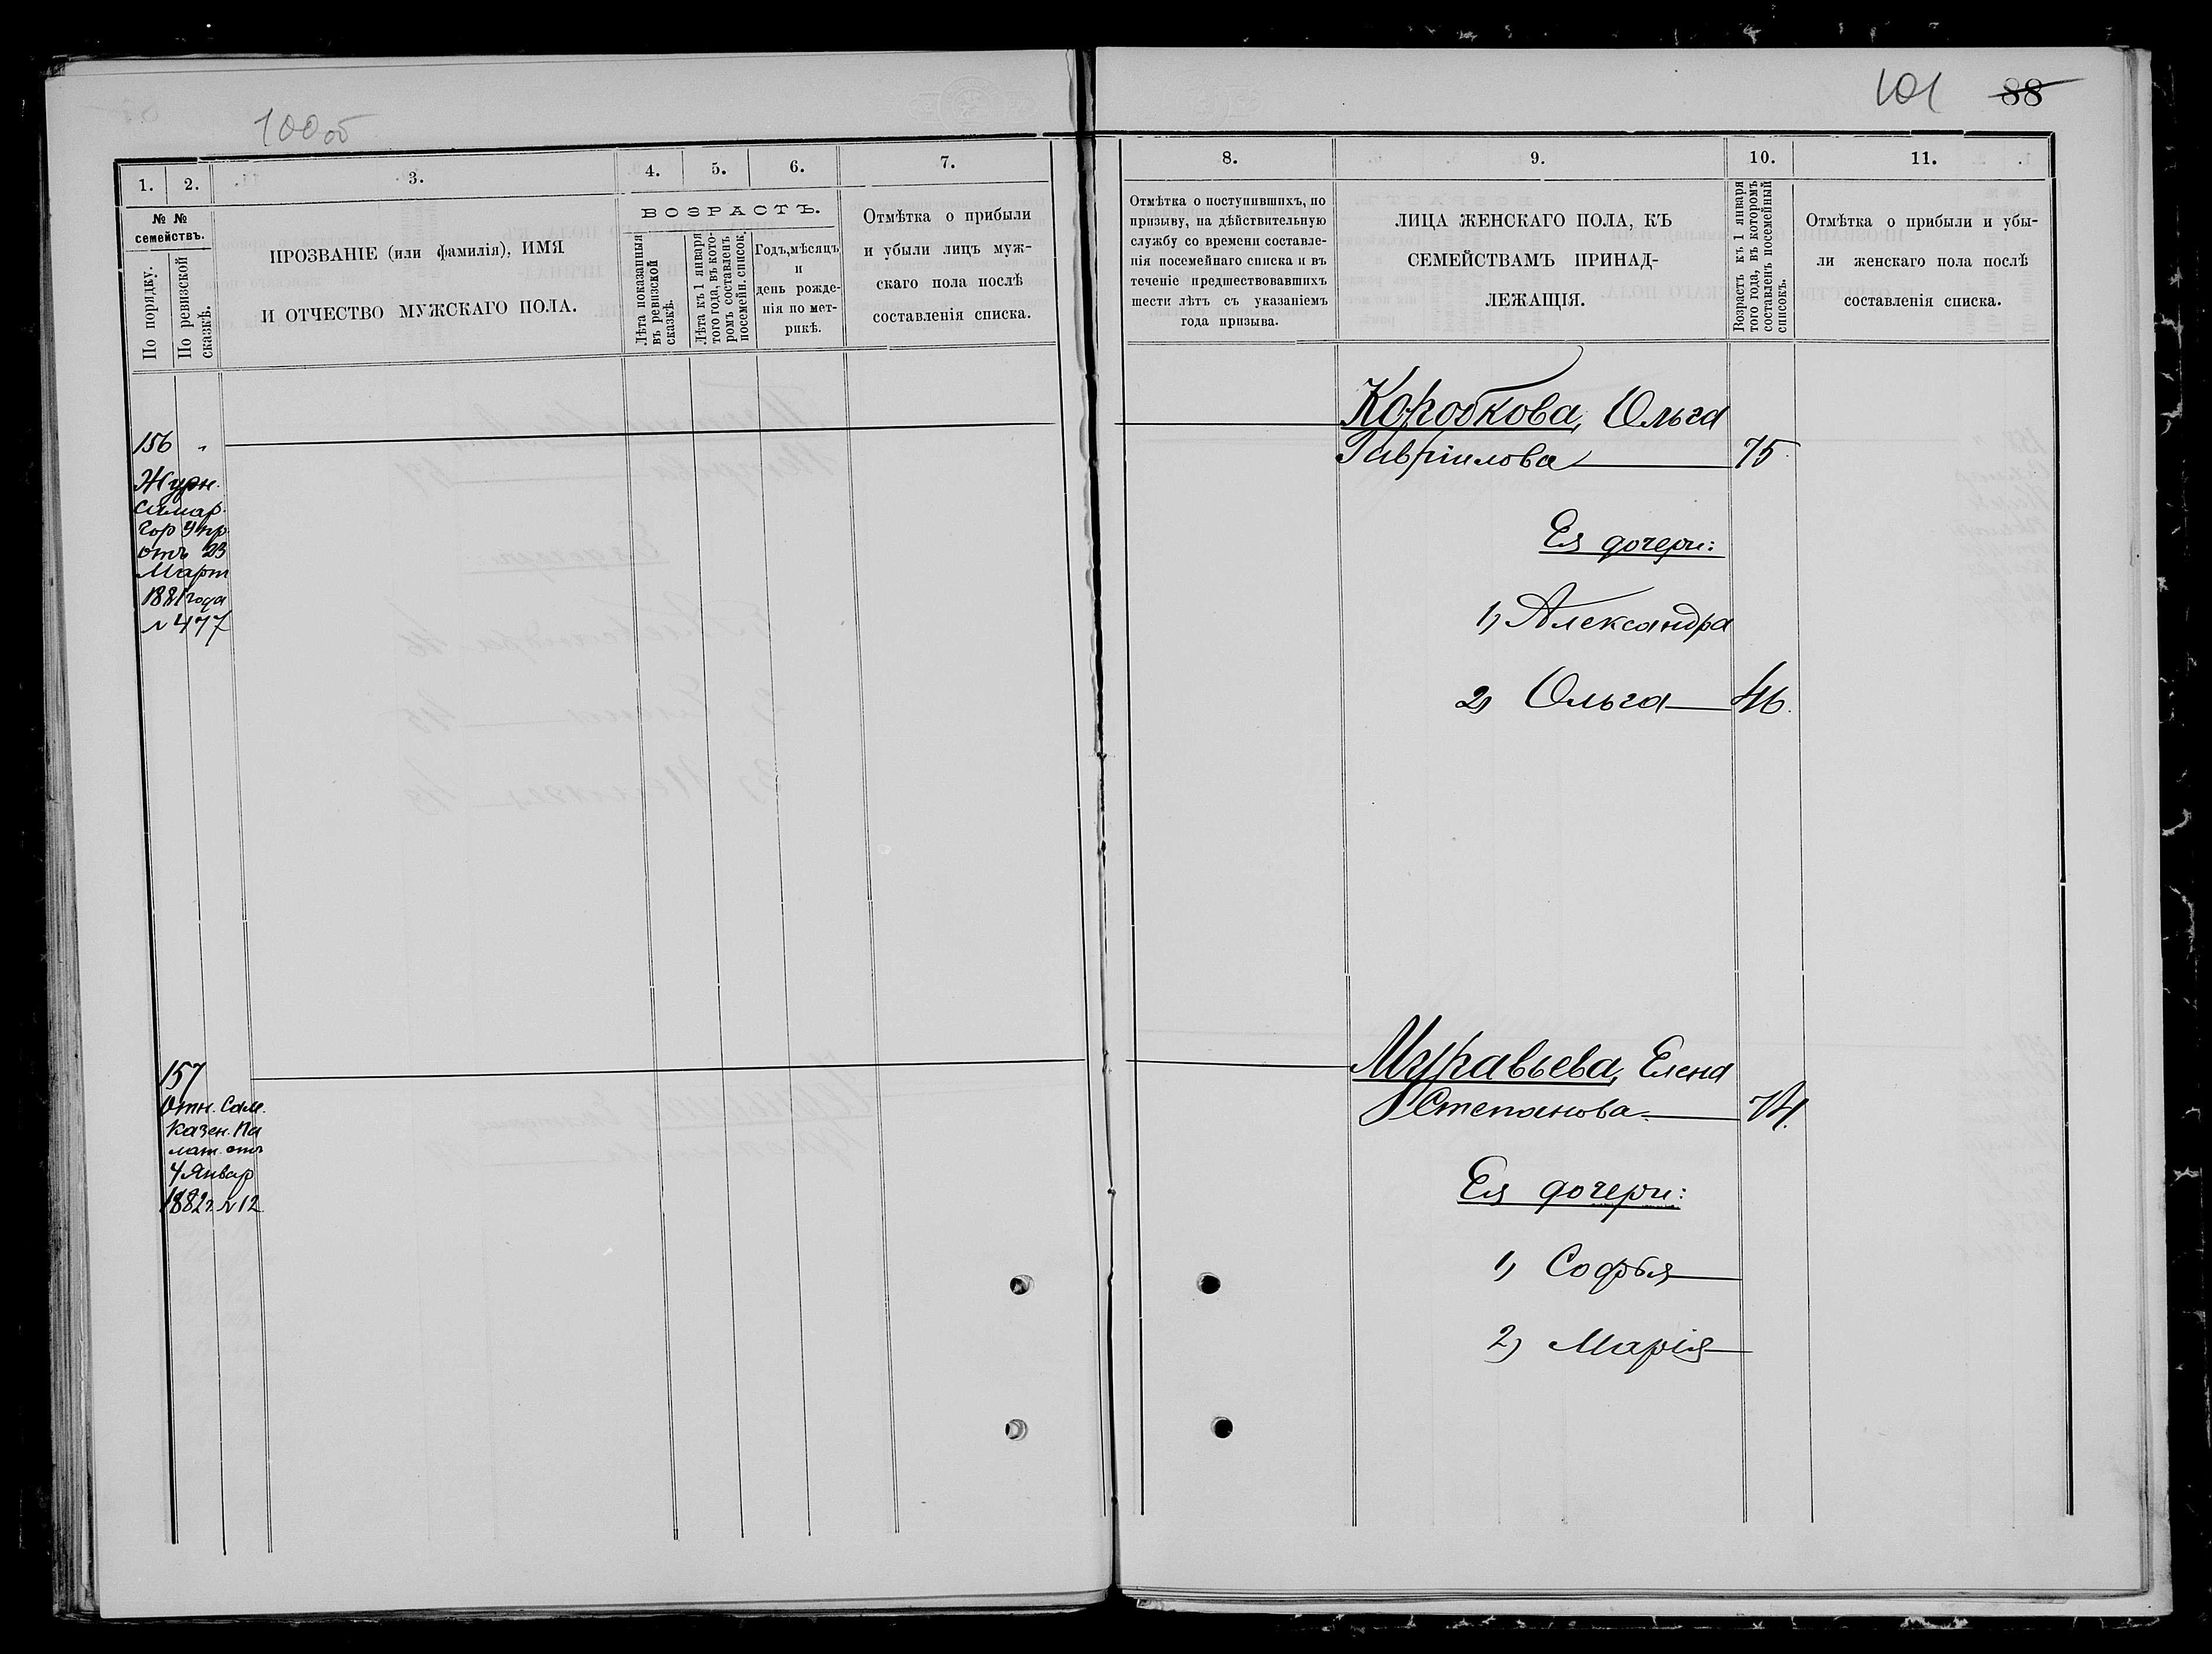 100об
101 88
1. 2. 3. 4. 5. 6. 7.
№ №
семействъ.
По порядку.
По ревизской
сказкѣ.
ПРОЗВАНІЕ (или фамилія), ИМЯ
И ОТЧЕСТВО МУЖСКАГО ПОЛА.
ВОЗРАСТЪ.
Лѣта показанныя
въ ревизской
сказкѣ.
Лѣта къ 1 января
того года, въ кото-
ромъ составленъ
посемейн. список.
Годъ, мѣсяцъ
и
день рожде-
нія по мет-
рикѣ.
Отмѣтка о прибыли
и убыли лицъ муж-
скаго пола послѣ
составленія списка.
156 „
Журн.
Самар.
Гор Упр
отъ 23
Март
1881 года
№ 477
157
Отн. Сам.
Казен. Па
лат. отъ
4 Январ
1882 г. № 12
8. 9. 10. 11.
Отмѣтка о поступившихъ, по
призыву, на дѣйствительную
службу со времени составле-
нія посемейнаго списка и въ
теченіе предшествовавшихъ
шести лѣтъ съ указаніемъ
года призыва.
ЛИЦА ЖЕНСКАГО ПОЛА, КЪ
СЕМЕЙСТВАМЪ ПРИНАД-
ЛЕЖАЩІЯ.
Возрастъ къ 1 января
того года, въ которомъ
составленъ посемейный
списокъ.
Отмѣтка о прибыли и убы-
ли женскаго пола послѣ
составленія списка.
Коробкова, Ольга
Гавріилова 75
Ея дочери:
1) Александра
2) Ольга 46.
Муравьева, Елена
Степанова 74.
Ея дочери:
1) Софья
2) Марія